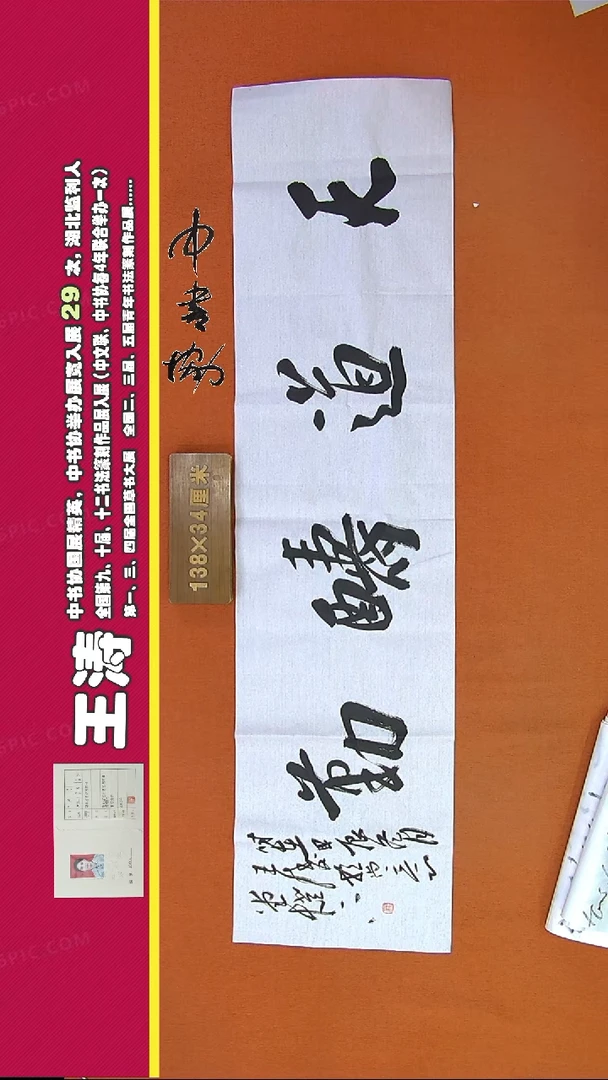 王涛
中书协国展精英，中书协举办展览入展29次，湖北监利人
全国第九、十届、十二书法篆刻作品展入展（中文联、中书协每4年联合举办一次）
第一、三、四届全国草书大展 全国二、三届、五届青年书法篆刻作品展......
中书协
138×34厘米
天道醻勤